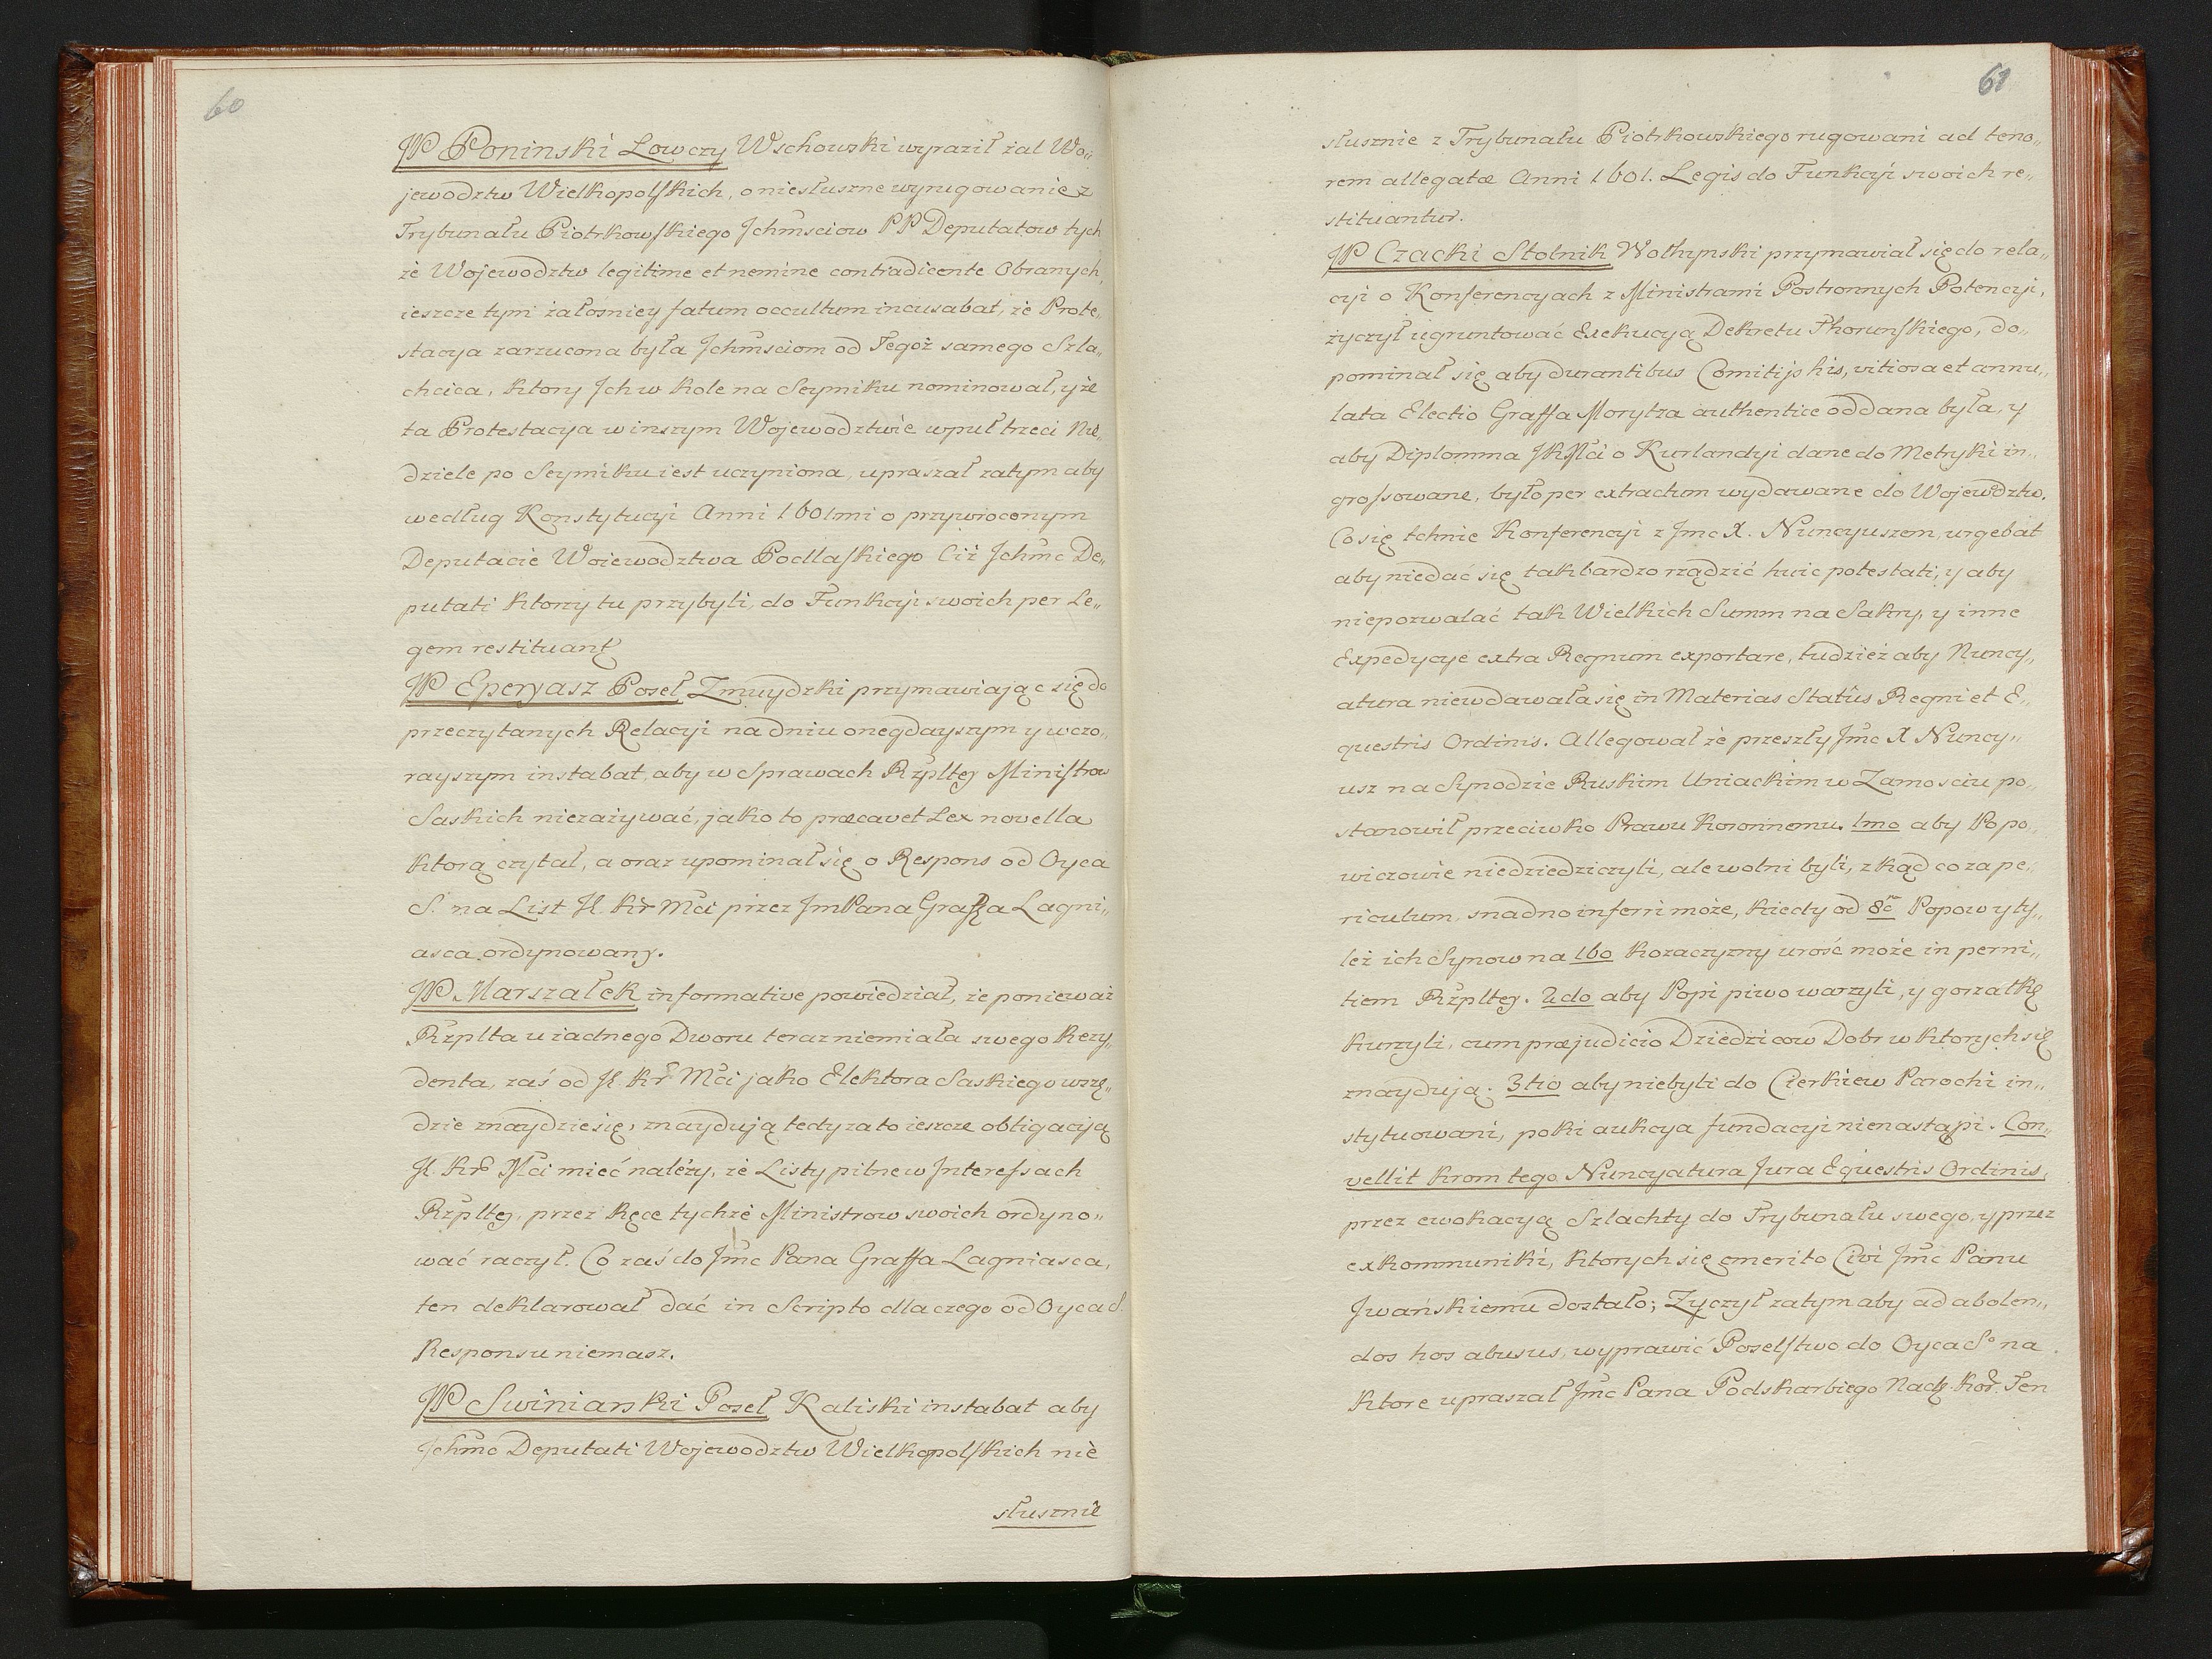 60
JP Poninski Łowczy Wschowski wyraził żal Wo„
jewodztw Wielkopolskich, o niesłuszne wyrugowanie z
Trybunału Piotrkowskiego Jchmsciow PP Deputatow tych
że Wojewodztw legitime et nemine contradicente Obranych,
ieszcze tym żałosniey fatum occultum incusabat, że Prote„
stacya zarzucona była Jchmsciom od Tegoż samego Szla„
chcica, ktory Jch w kole na Seymiku nominował, y że
ta Protestacya w inszym Wojewodztwie wpuł trzeci Nie„
dziele po Seymiku iest uczyniona, upraszał zatym aby
według Konstytucyi Anni 1601mi o przywroconym
Deputacie Woiewodztwa Podlaskiego Ciż Jchmc De„
putati ktorzy tu przybyli, do Funkcyi swoich per Le„
gem restituant
JP Eperyasz Poseł Zmuydzki przymawiając się do
przeczytanych Relacyi na dniu onegdayszym y wczo„
rayszym instabat, aby w Sprawach Rzpltey Ministrow
Saskich niezażywać, jako to præcavet Lex novella
ktorą czytał, a oraz upominał się o Respons od Oyca
S. na List J. Kr Mci przez JmPana Graffa Lagni„
asca ordynowany.
JP Marszałek informative powiedział, że ponieważ
Rzplta u żadnego Dworu teraz niemiała swego Rezy„
denta, zaś od J. Kr Mci jako Elektora Saskiego wszę„
dzie znaydzie się, znaydują tedy za to ieszcze obligacyą
J. Kr Mci mieć należy, że Listy pilne w Interessach
Rzpltey, przez Ręce tychże Ministrow swoich ordyno„
wać raczył. Co zaś do Jmc Pana Graffa Lagniasca,
ten deklarował dać in Scripto dlaczego od Oyca S.
Responsu niemasz.
JP Swinianski Poseł Kaliski instabat aby
Jchmc Deputati Wojewodztw Wielkopolskich nie
słusznie
61
słusznie z Trybunału Piotrkowskiego rugowani ad teno„
rem allegatæ Anni 1601. Legis do Funkcyi swoich re„
stituantur.
JP Czacki Stolnik Wołhynski przymawiał się do rela„
cyi o Konferencyach z Ministrami Postronnych Potencyi,
życzył ugruntować Exekucyą Dekretu Thorunskiego, do„
pominał się aby durantibus Comitijs his, vitiosa et annu„
lata Electio Graffa Morytza authentice oddana była, y
aby Diplomma JKMci o Kurlandyi dane do Metryki in„
grossowane, było per extractum wydawane do Wojewdztw.
Co się tchnie Konferencyi z Jmc X. Nuncyuszem, urgebat
aby niedać się tak bardzo rządzić huic potestati, y aby
niepozwalać tak Wielkich Summ na Sakry, y inne
Expedycye extra Regnum exportare, tudzież aby Nuncy„
atura niewdawała się in Materias Statûs Regni et E„
questris Ordinis. Allegował że przeszły Jmc X Nuncy„
usz na Synodzie Ruskim Uniackim w Zamosciu po„
stanowił przeciwko Prawu Koronnemu. 1mo aby Popo„
wiczowie niedziedziczyli, ale wolni byli, zkąd co za pe„
riculum, snadno inferri może, kiedy od 8c Popow y ty„
leż ich Synow na 160 Kozaczyzny urość może in perni„
tiem Rzpltey. 2do aby Popi piwo warzyli, y gorzałkę
kurzyli, cum præjudicio Dziedzicow Dobr w ktorych się
znaydują. 3tio aby niebyli do Cierkiew Parochi in„
stytuowani, poki aukcya fundacyi nienastąpi. Con„
vellit krom tego Nuncyatura Jura Equestris Ordinis,
przez ewokacyą Szlachty do Trybunału swego, y przez
exkommuniki, ktorych się emerito Civi Jmc Panu
Jwańskiemu dostało; Zyczył zatym aby ad abolen„
dos hos abusus, wyprawić Poselstwo do Oyca So na
ktore upraszał Jmc Pana Podskarbiego Nadz. Kor. Ten